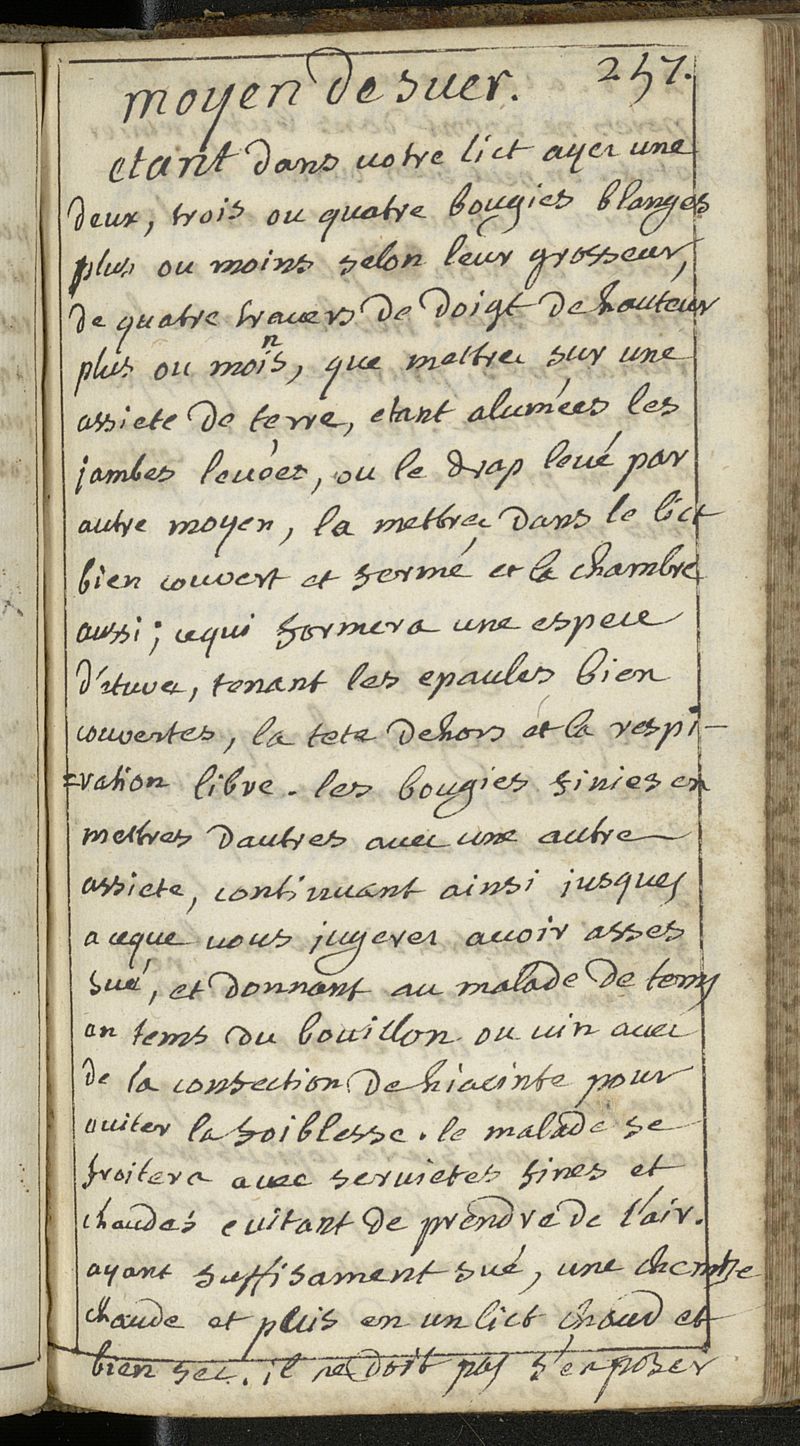 moyen de suer. 257.
etant dans votre lict ayer une
deux, trois ou quatre bougies blanges
plus ou moins selon leur grosseur,
de quatre travers de doigt de hauteur
plus ou moins, que mettrer sur une
assiete de terre, etant alumées les
jambes levées, ou le drap levé par
autre moyen, la mettrer dans le lict
bien couvert et fermé et la chambre
aussi; cequi formera une espece
d'etuve, tenant les epaules bien
couvertes, la tete dehors et la respi-
=ration libre. les bougies finies en
mettres dautres avec une autre
assiete, continuant ainsi jusques
a ceque vous jugerer avoir asses
sué, et donnant au malade de tems
en tems du bouillon ou vin avec
de la confection de hiacinte pour
eviter la foiblesse. le malade se
froitera avec servietes fines et
chaudes evitant de prendre de l'air.
ayant suffisament sué, une chemise
chaude et puis en un lict chaud et
bien sec. il ne doit pas s'exposer